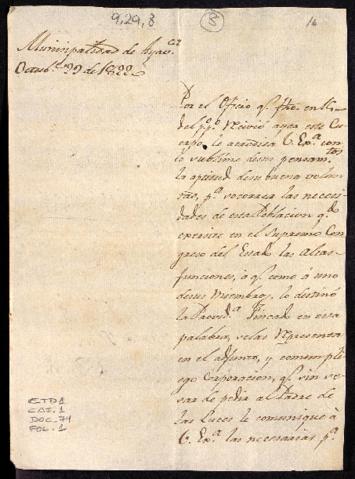 9, 29, 8 2 14
Municipalidad de Ayav.ca
Octub.e 29 de 1822
Por el Oficio q.e fho en
del p.o recivió ayer este Cu-
erpo, le
lo sublime de sus pensam.tos
la aptitud de su buena volun-
tad, p.a socorrer las necesi-
dades de esta Poblacion q.do
exersite en el Supremo Con-
greso del Estado las Altas
funciones, á q.e como á uno
de sus Miembros, lo destinó
la Provid.a Fincado en esta
palabra, se las representa
en el adjunto, y contempla
ego Corporacion, q.e sin ce-
sar de pedir al Padre de
las Luces le comunique á
V. Ex.a las necesarias p.a
ESTD 1
CAT. 1
DOC. 74
FOL. 1